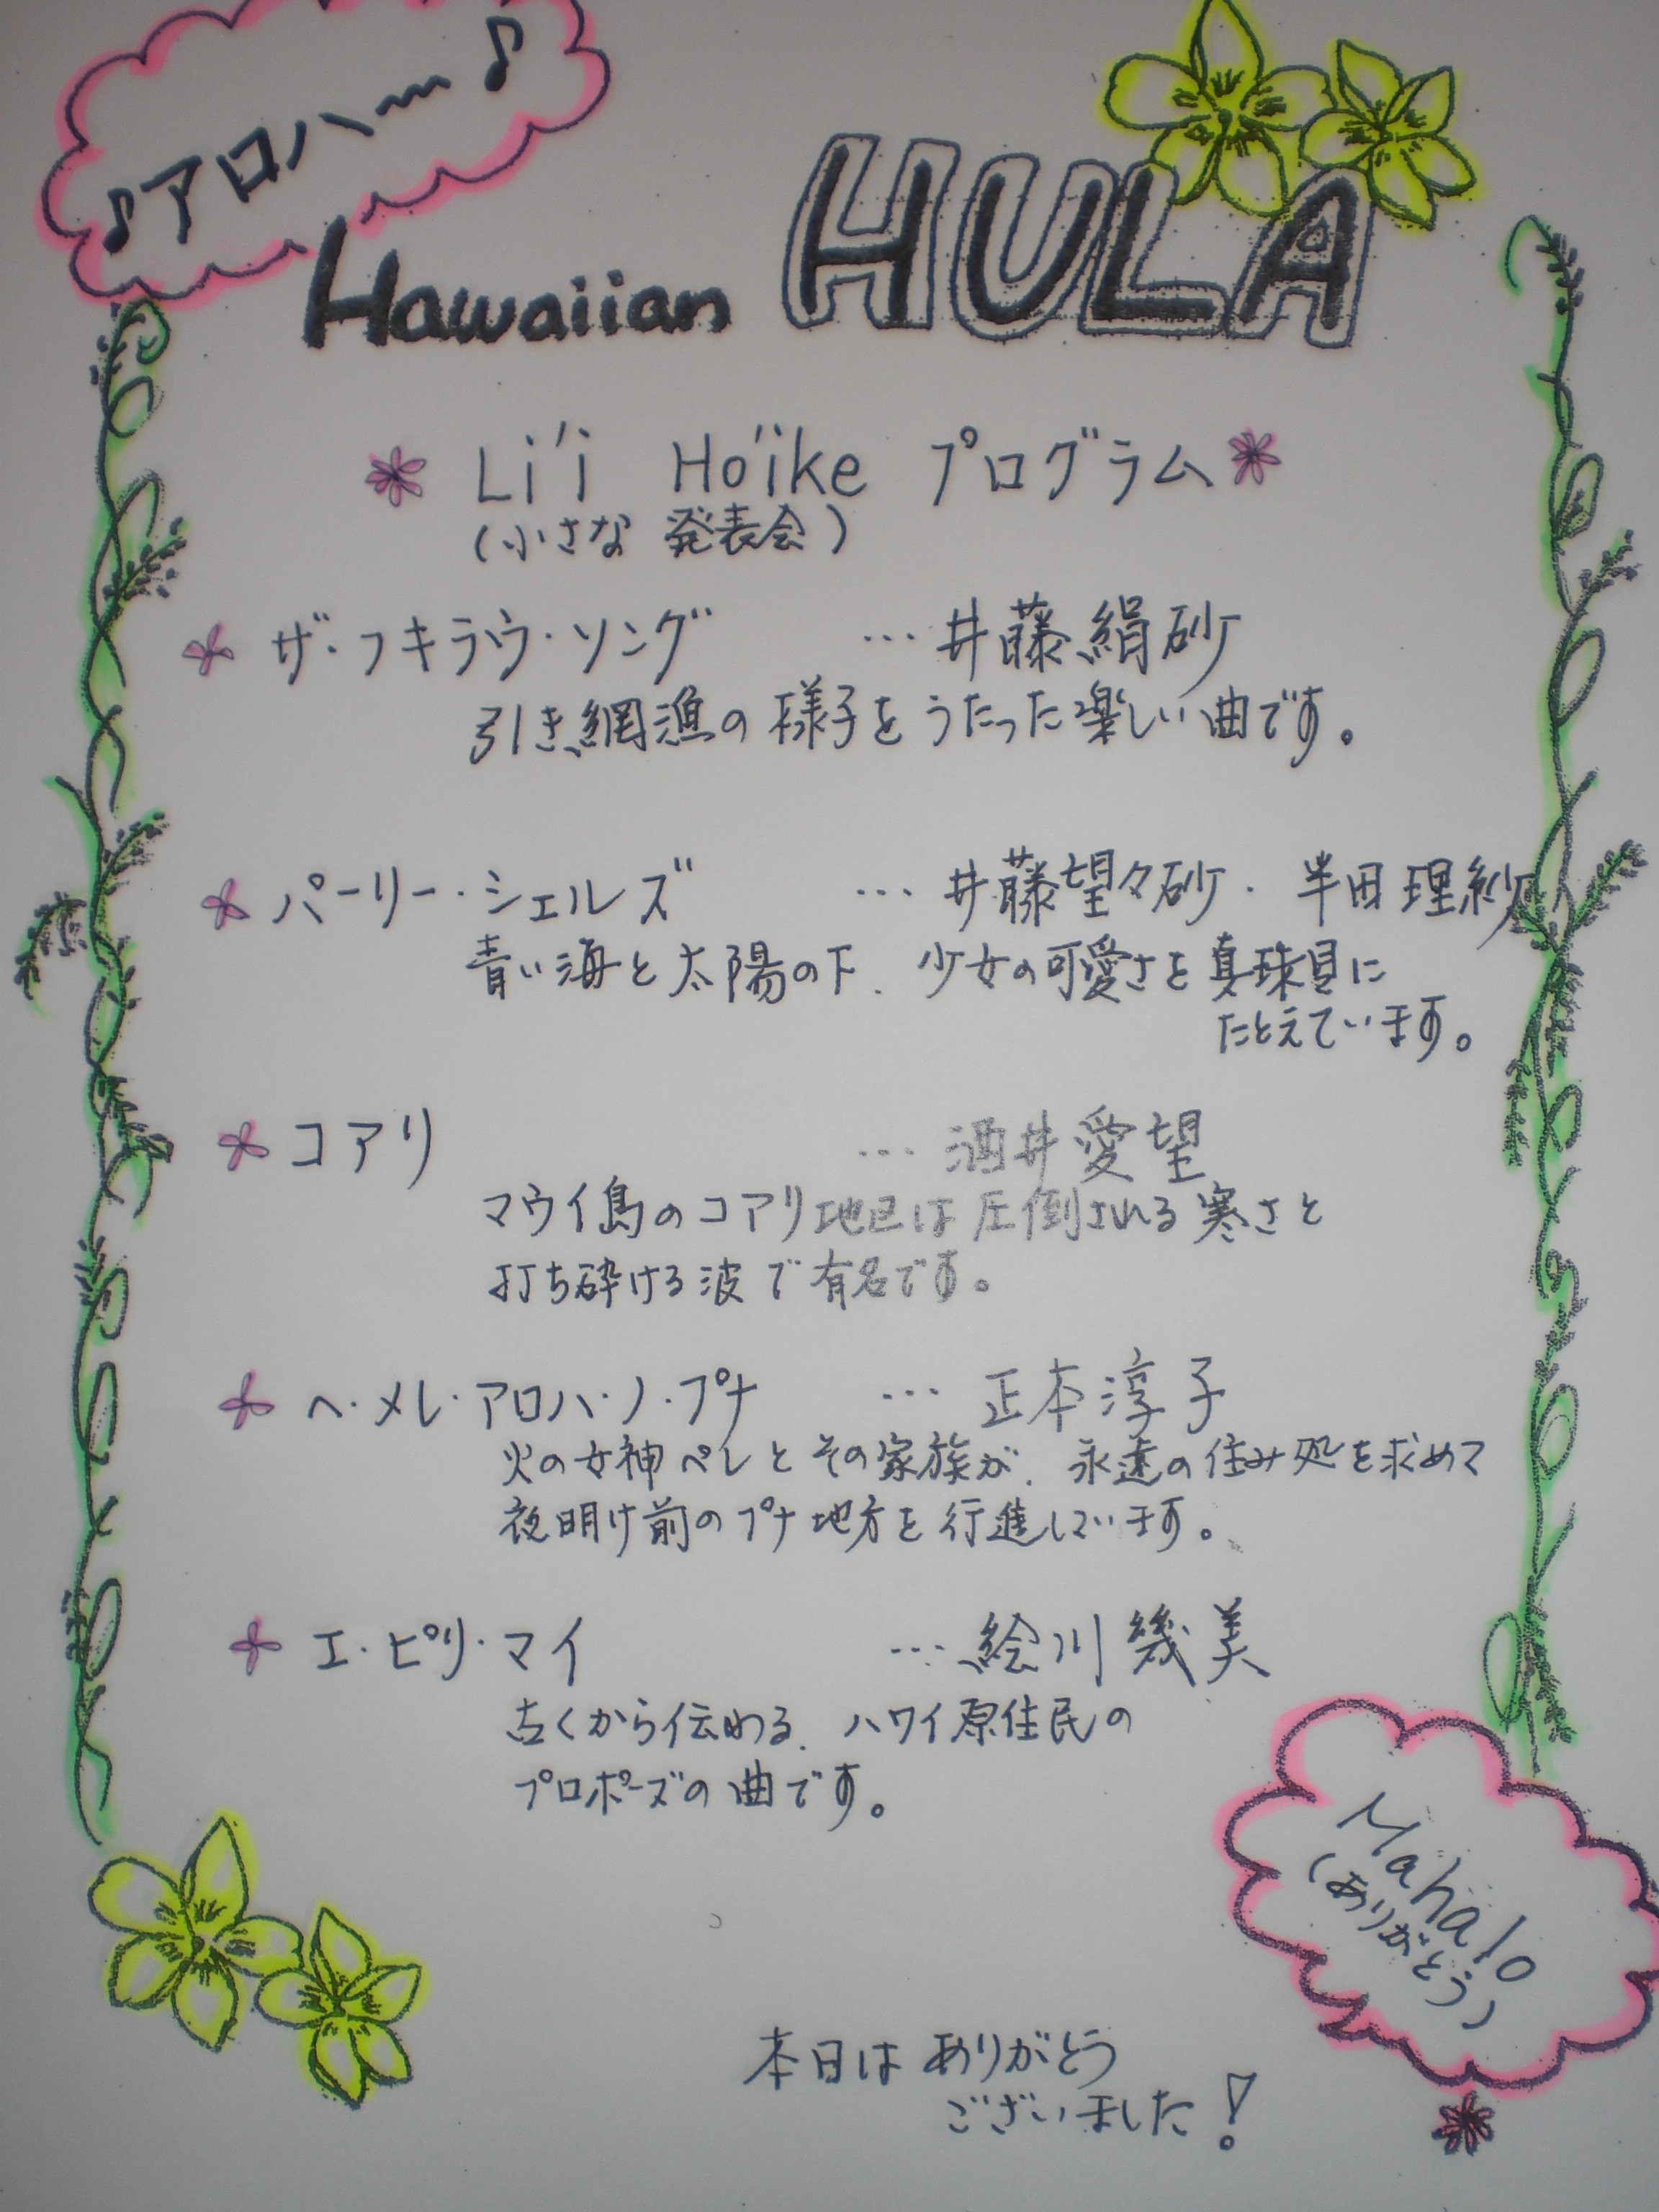 ♪アロハ〜♪
Hawaiian HULA
Li'i Ho'ike プログラム
(小さな 発表会)
ザ・フキラウ・ソング …井藤絹砂
引き網漁の様子をうたった楽しい曲です。
パーリー・シェルズ …井藤望々砂・半田理紗
青い海と太陽の下、少女の可愛さを真珠貝に
たとえています。
コアリ …酒井愛望
マウイ島のコアリ地区は圧倒される寒さと
打ち砕ける波で有名です。
ヘ・メレ・アロハ・ノ・プナ …正本淳子
火の女神ペレとその家族が、永遠の住み処を求めて
夜明け前のプナ地方を行進しています。
エ・ピリ・マイ …絵川幾美
古くから伝わる、ハワイ原住民の
プロポーズの曲です。
Mahalo
(ありがとう)
本日はありがとう
ございました!